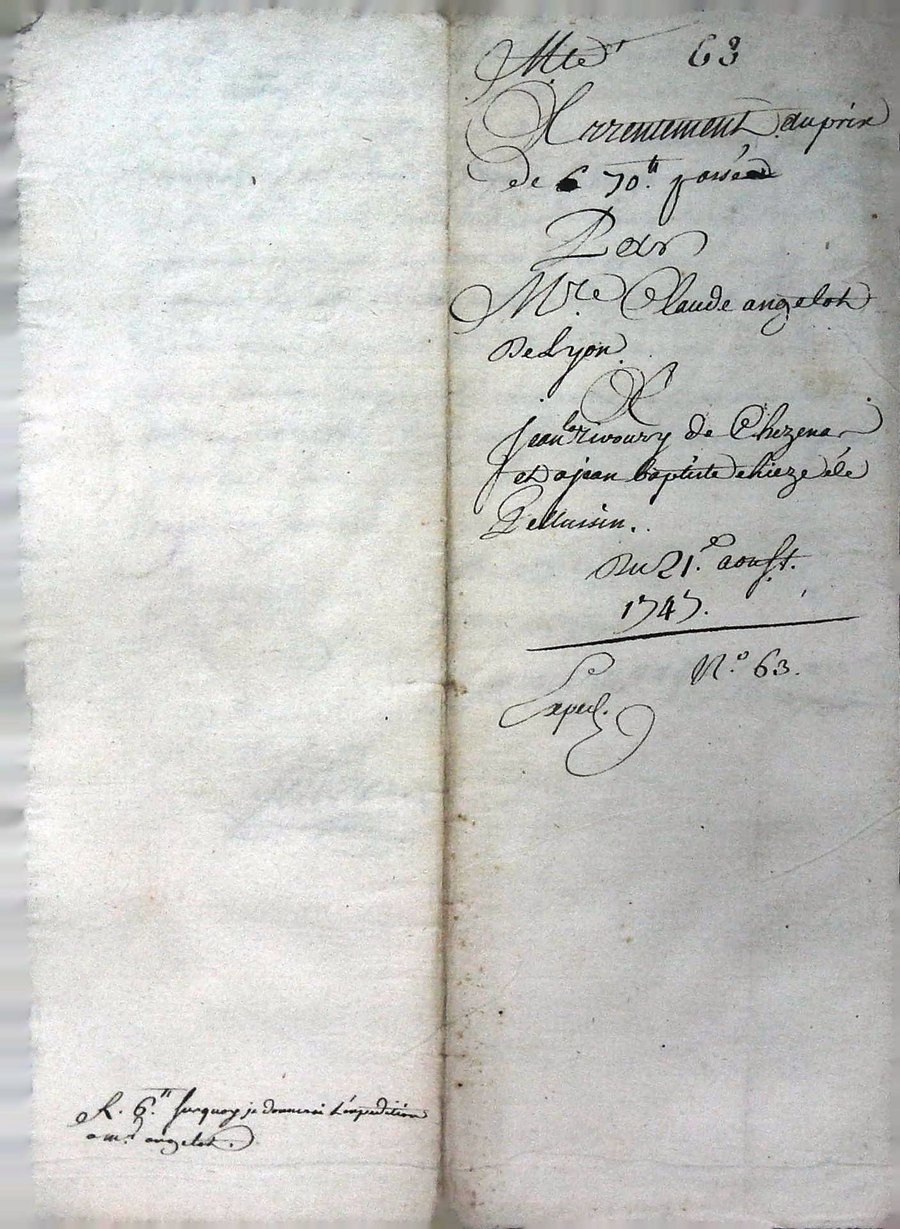 63
Arrentement du prix
de 670.ᵗᵗ passée
Par
Mre Claude angelot
De Lyon
A
jean rivoiry de Chezenas
et a jean baptiste chieze de
Pellussin.
Du 21.e aoust.
1747.
N.º 63.
Exped.
R. 6.ᵗᵗ surquoy je donnerai l'expedition
a mr. angelot.